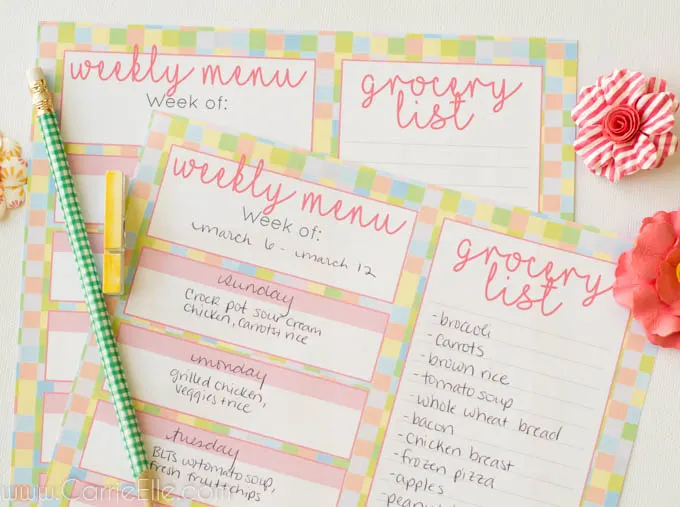 weekly menu
Week of:
grocery
list
weekly menu
Week of:
march 6 - march 12
sunday
Crock pot sour cream
chicken, carrots, rice
monday
grilled chicken,
veggies, rice
tuesday
BLTs w/tomato soup,
fresh fruit, chips
grocery
list
-broccoli
-carrots
-brown rice
-tomato soup
-whole wheat bread
-bacon
-chicken breast
-frozen pizza
-apples
-peanut
www.CarrieElle.com